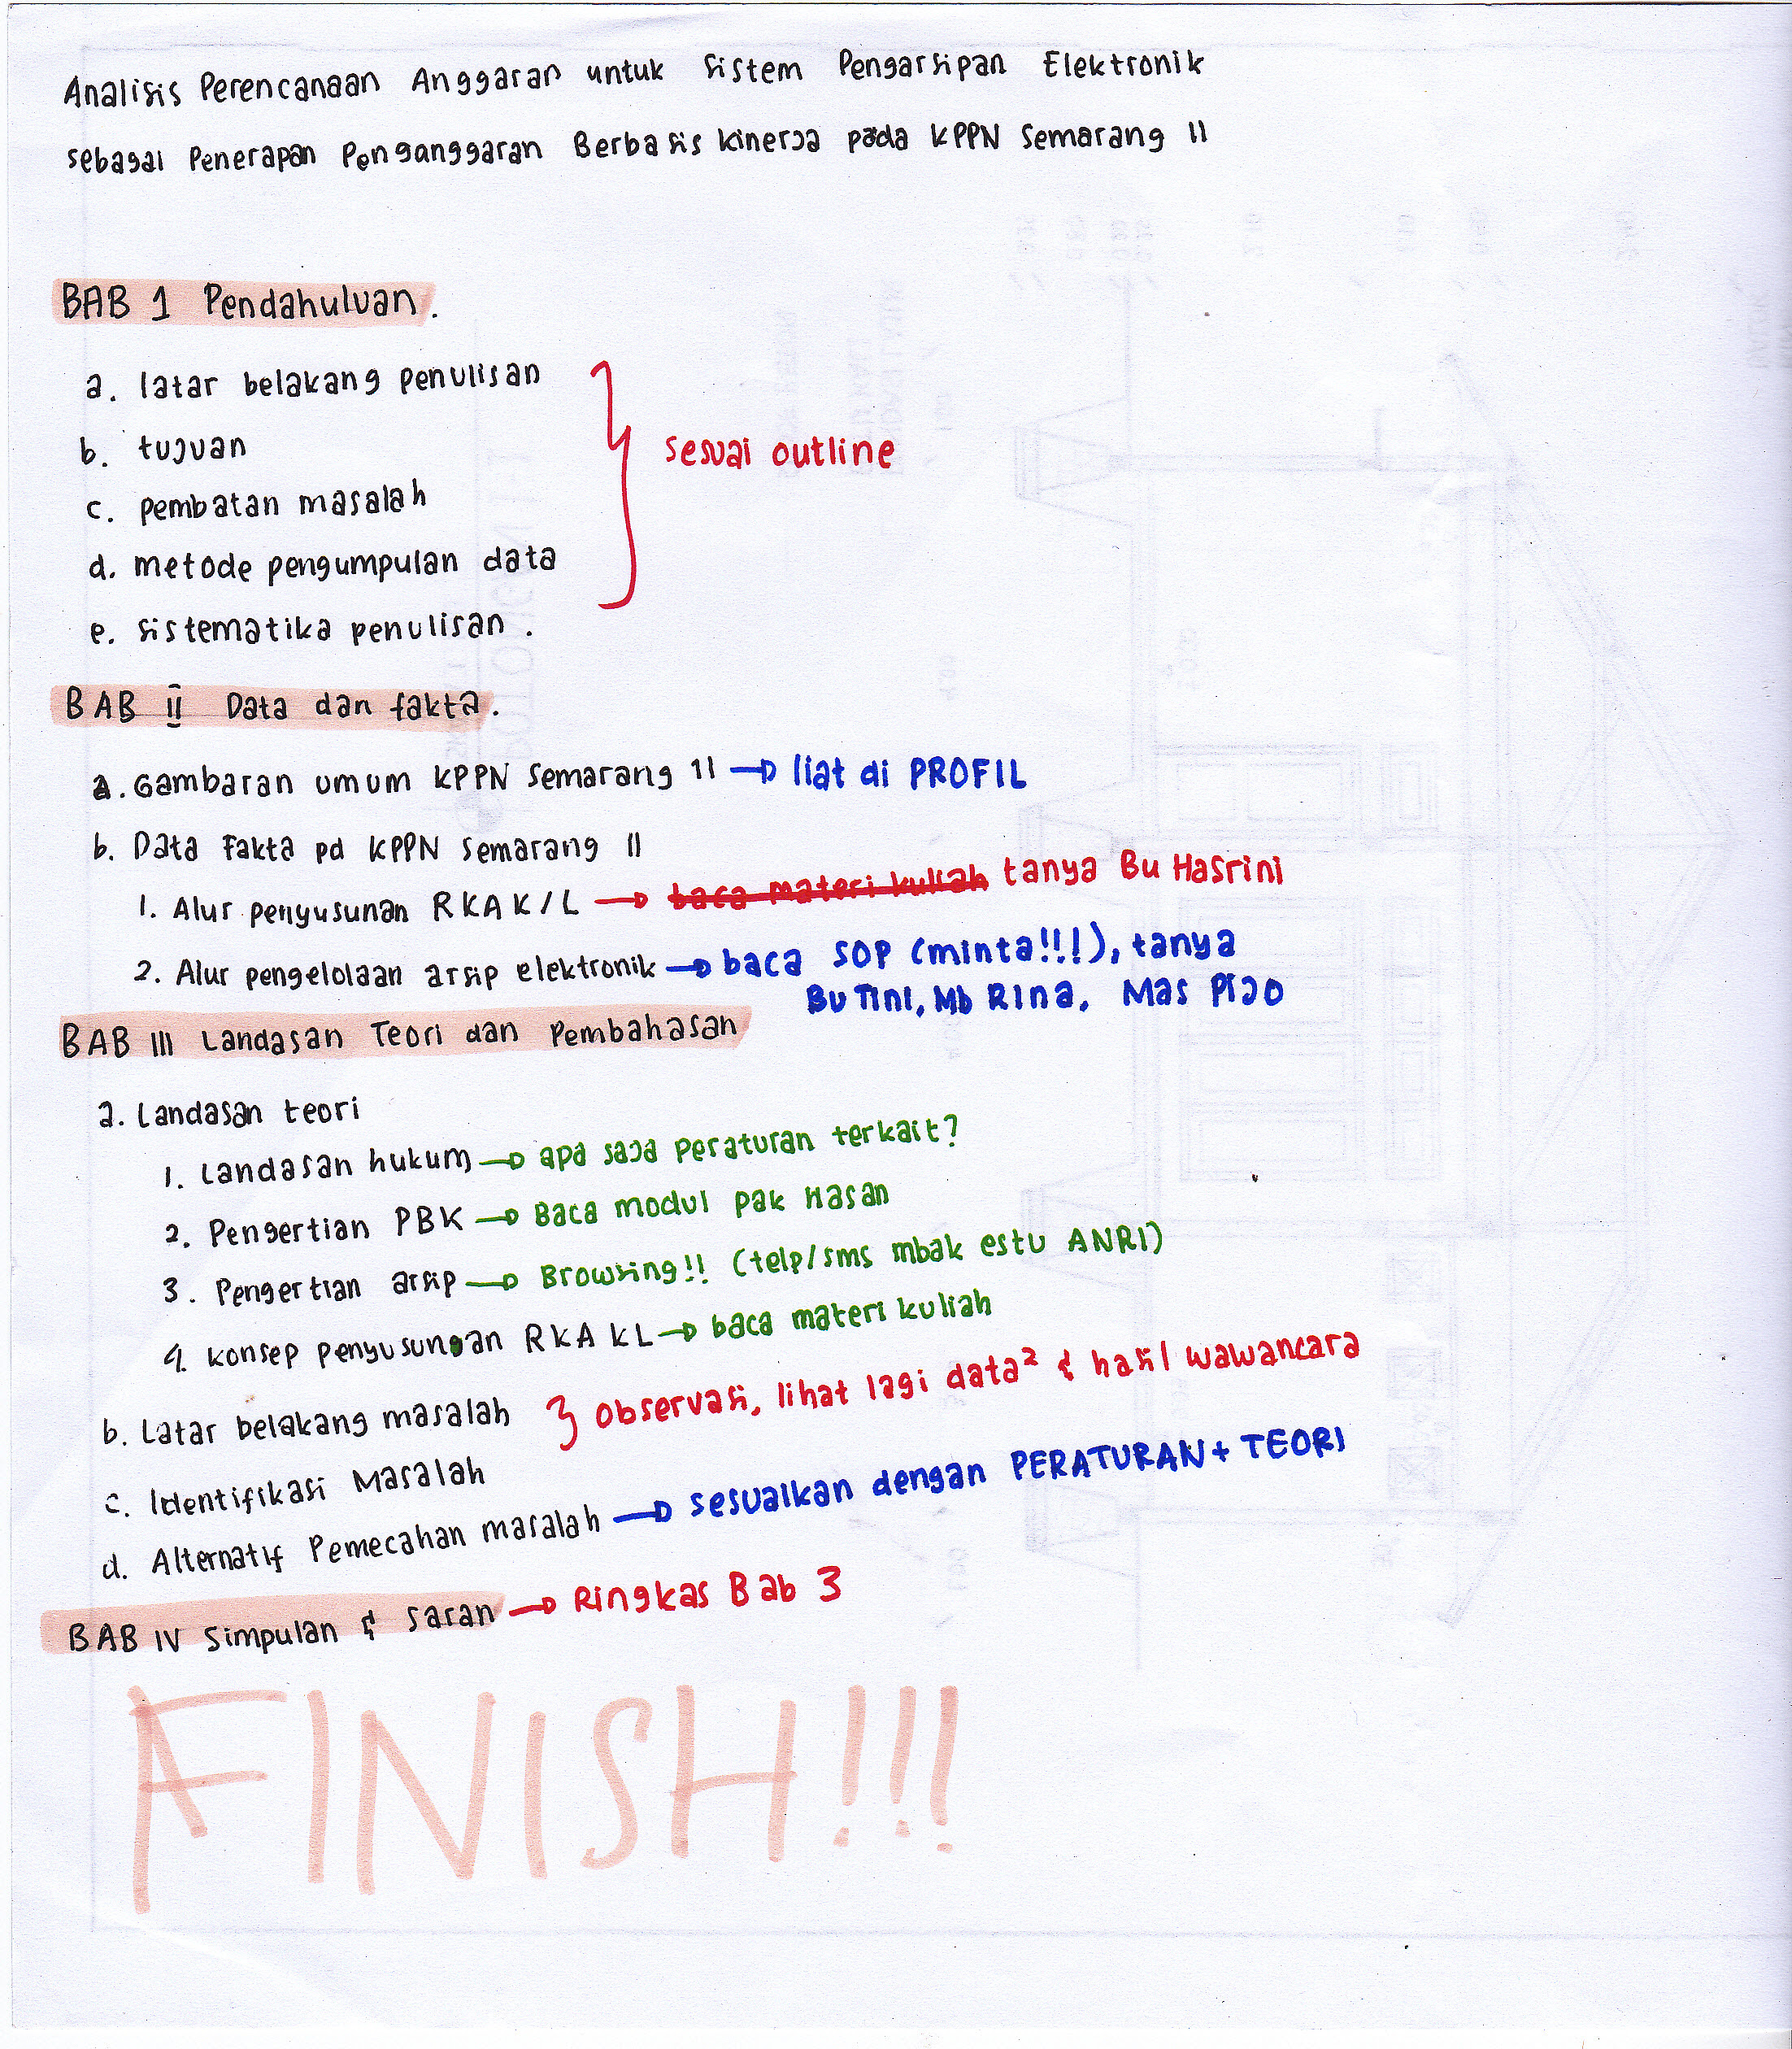 Analisis Perencanaan Anggaran untuk Sistem Pengarsipan Elektronik
sebagai Penerapan Penganggaran Berbasis kinerja pada KPPN Semarang II
BAB 1 Pendahuluan.
a. latar belakang penulisan
b. tujuan
sesuai outline
c. pembatan masalah
d. metode pengumpulan data
e. sistematika penulisan.
BAB II Data dan fakta.
a. Gambaran umum KPPN Semarang II → liat di PROFIL
b. Data Fakta pd KPPN Semarang II
1. Alur penyusunan RKAK/L → baca materi kuliah tanya Bu Hasrini
2. Alur pengelolaan arsip elektronik → baca SOP (minta!!!), tanya
Bu Tini, Mb Rina, Mas Pijo
BAB III Landasan Teori dan Pembahasan
a. Landasan teori
1. Landasan hukum → apa saja peraturan terkait?
2. Pengertian PBK → Baca modul pak Hasan
3. Pengertian arsip → Browsing!! (telp/sms mbak estu ANRI)
4. konsep penyusungan RKA KL → baca materi kuliah
b. Latar belakang masalah } observasi, lihat lagi data² & hasil wawancara
c. Identifikasi Masalah
d. Alternatif Pemecahan masalah → sesuaikan dengan PERATURAN + TEORI
BAB IV Simpulan & saran → Ringkas Bab 3
FINISH!!!